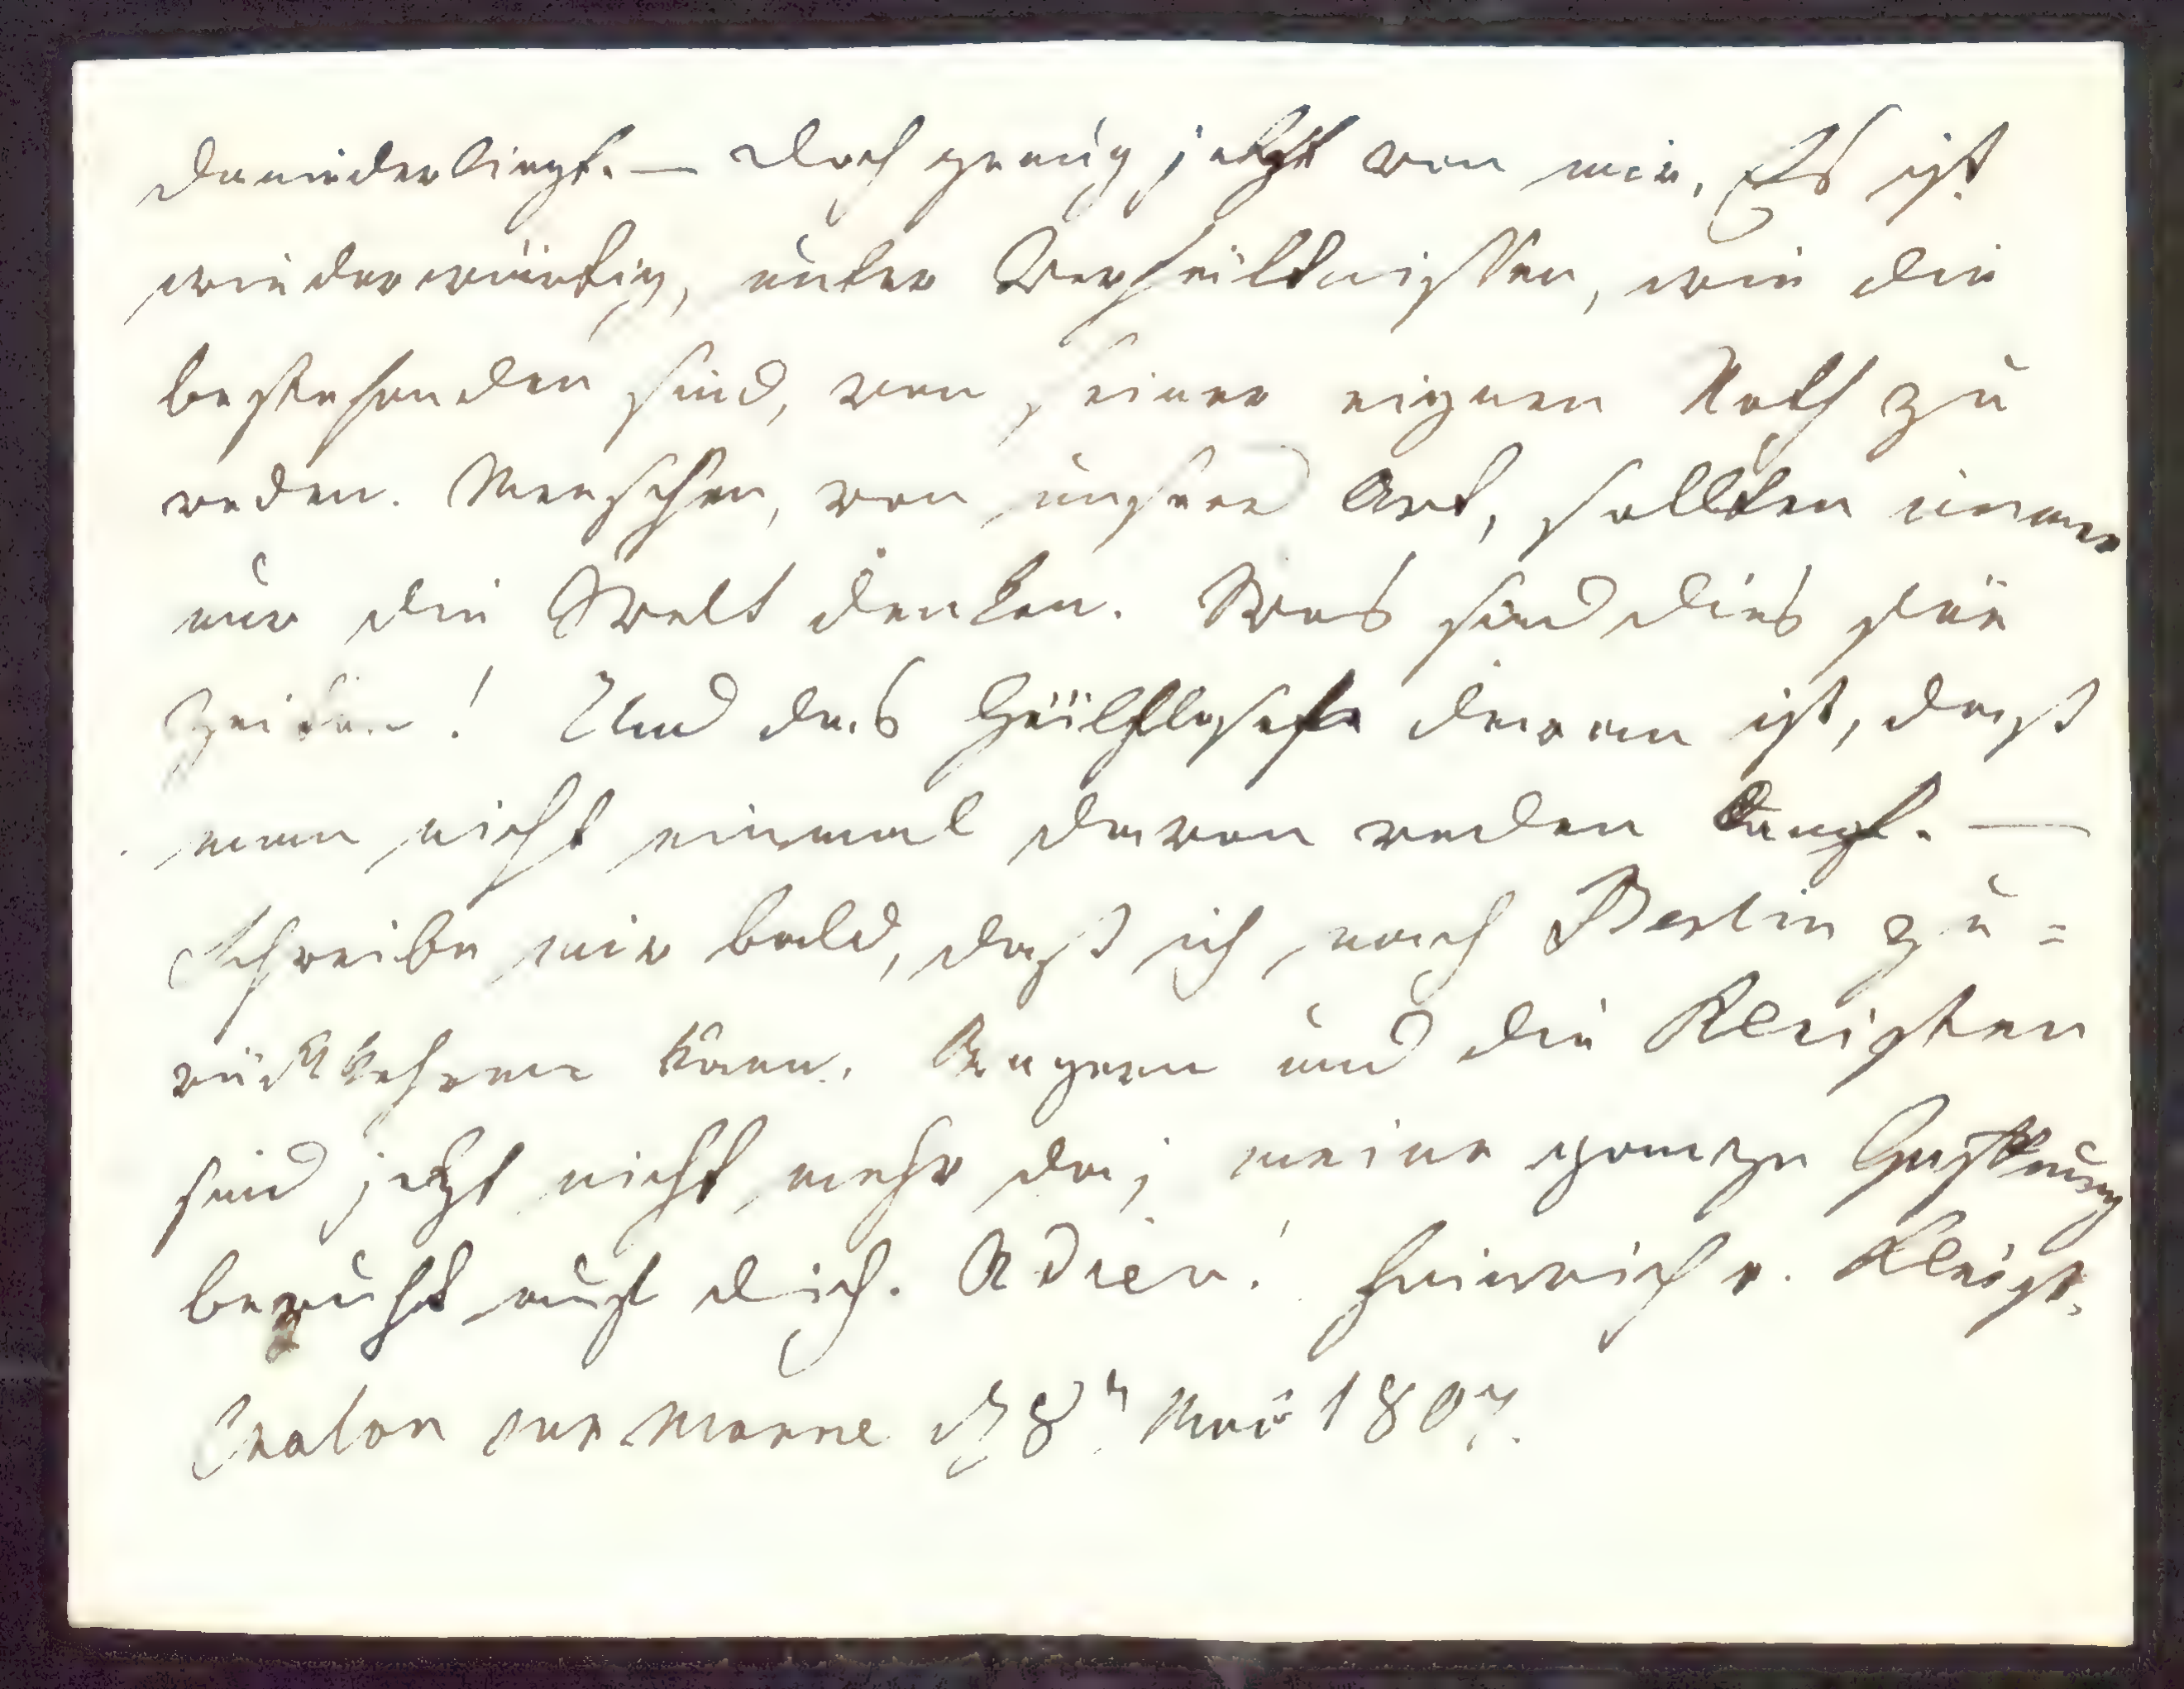 daniederliegt. — Doch genug jetzt von mir. Es ist
wiederwärtig, unter Verhältnissen, wie die
bestehenden sind, von seiner eignen Noth zu
reden. Menschen, von unsrer Art, sollten immer
nur die Welt denken. Was sind dies für
Zeiten! Und das Hülfloseste daran ist, daß
man nicht einmal davon reden darf. —
Schreibe mir bald, daß ich nach Berlin zu=
rückkehren kann. Angern und die Kleisten
sind jetzt nicht mehr da; meine ganze Hoffnung
beruht auf dich. Adieu! Heinrich v. Kleist.
Chalon sur Marne d 8t Mai 1807.